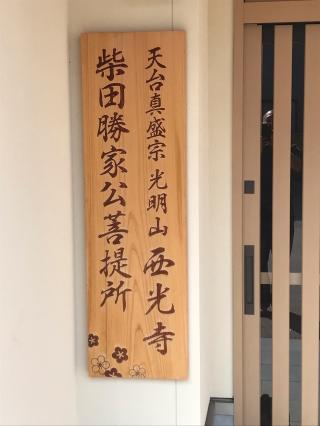 天台真盛宗 光明山 西光寺
柴田勝家公菩提所